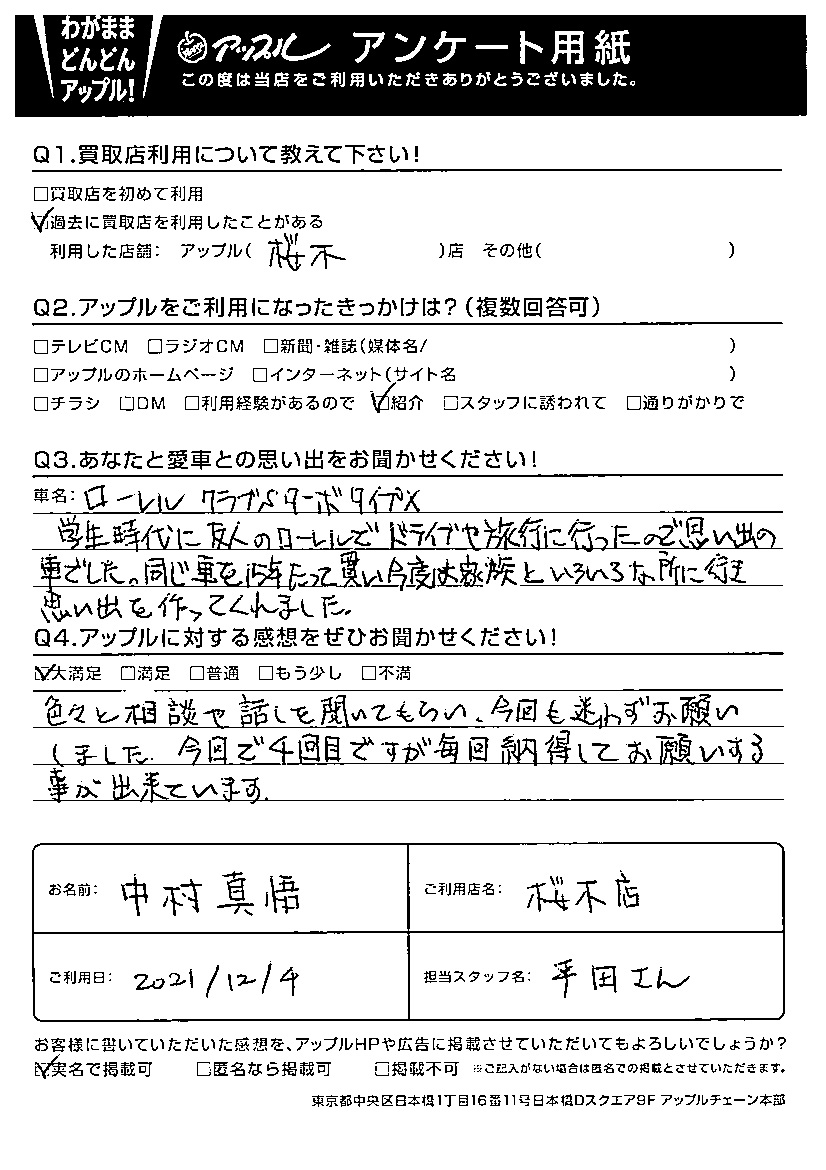 わがまま
どんどん
アップル!
アップル アンケート用紙
この度は当店をご利用いただきありがとうございました。
Q1.買取店利用について教えて下さい!
□買取店を初めて利用
☑過去に買取店を利用したことがある
利用した店舗: アップル( 桜木 )店 その他( )
Q2.アップルをご利用になったきっかけは?(複数回答可)
□テレビCM □ラジオCM □新聞・雑誌(媒体名/ )
□アップルのホームページ □インターネット(サイト名 )
□チラシ □DM □利用経験があるので ☑紹介 □スタッフに誘われて □通りがかりで
Q3.あなたと愛車との思い出をお聞かせください!
車名: ローレル クラブSターボタイプX
学生時代に友人のローレルでドライブや旅行に行ったので思い出の
車でした。同じ車を15年たって買い今度は家族といろいろな所に行き
思い出を作ってくれました。
Q4.アップルに対する感想をぜひお聞かせください!
☑大満足 □満足 □普通 □もう少し □不満
色々と相談や話しを聞いてもらい、今回も迷わずお願い
しました. 今回で4回目ですが毎回納得してお願いする
事が出来ています.
お名前: 中村真悟
ご利用店名: 桜木店
ご利用日: 2021/12/4
担当スタッフ名: 平田さん
お客様に書いていただいた感想を、アップルHPや広告に掲載させていただいてもよろしいでしょうか?
☑実名で掲載可 □匿名なら掲載可 □掲載不可 ※ご記入がない場合は匿名での掲載とさせていただきます。
東京都中央区日本橋1丁目16番11号日本橋Dスクエア9F アップルチェーン本部